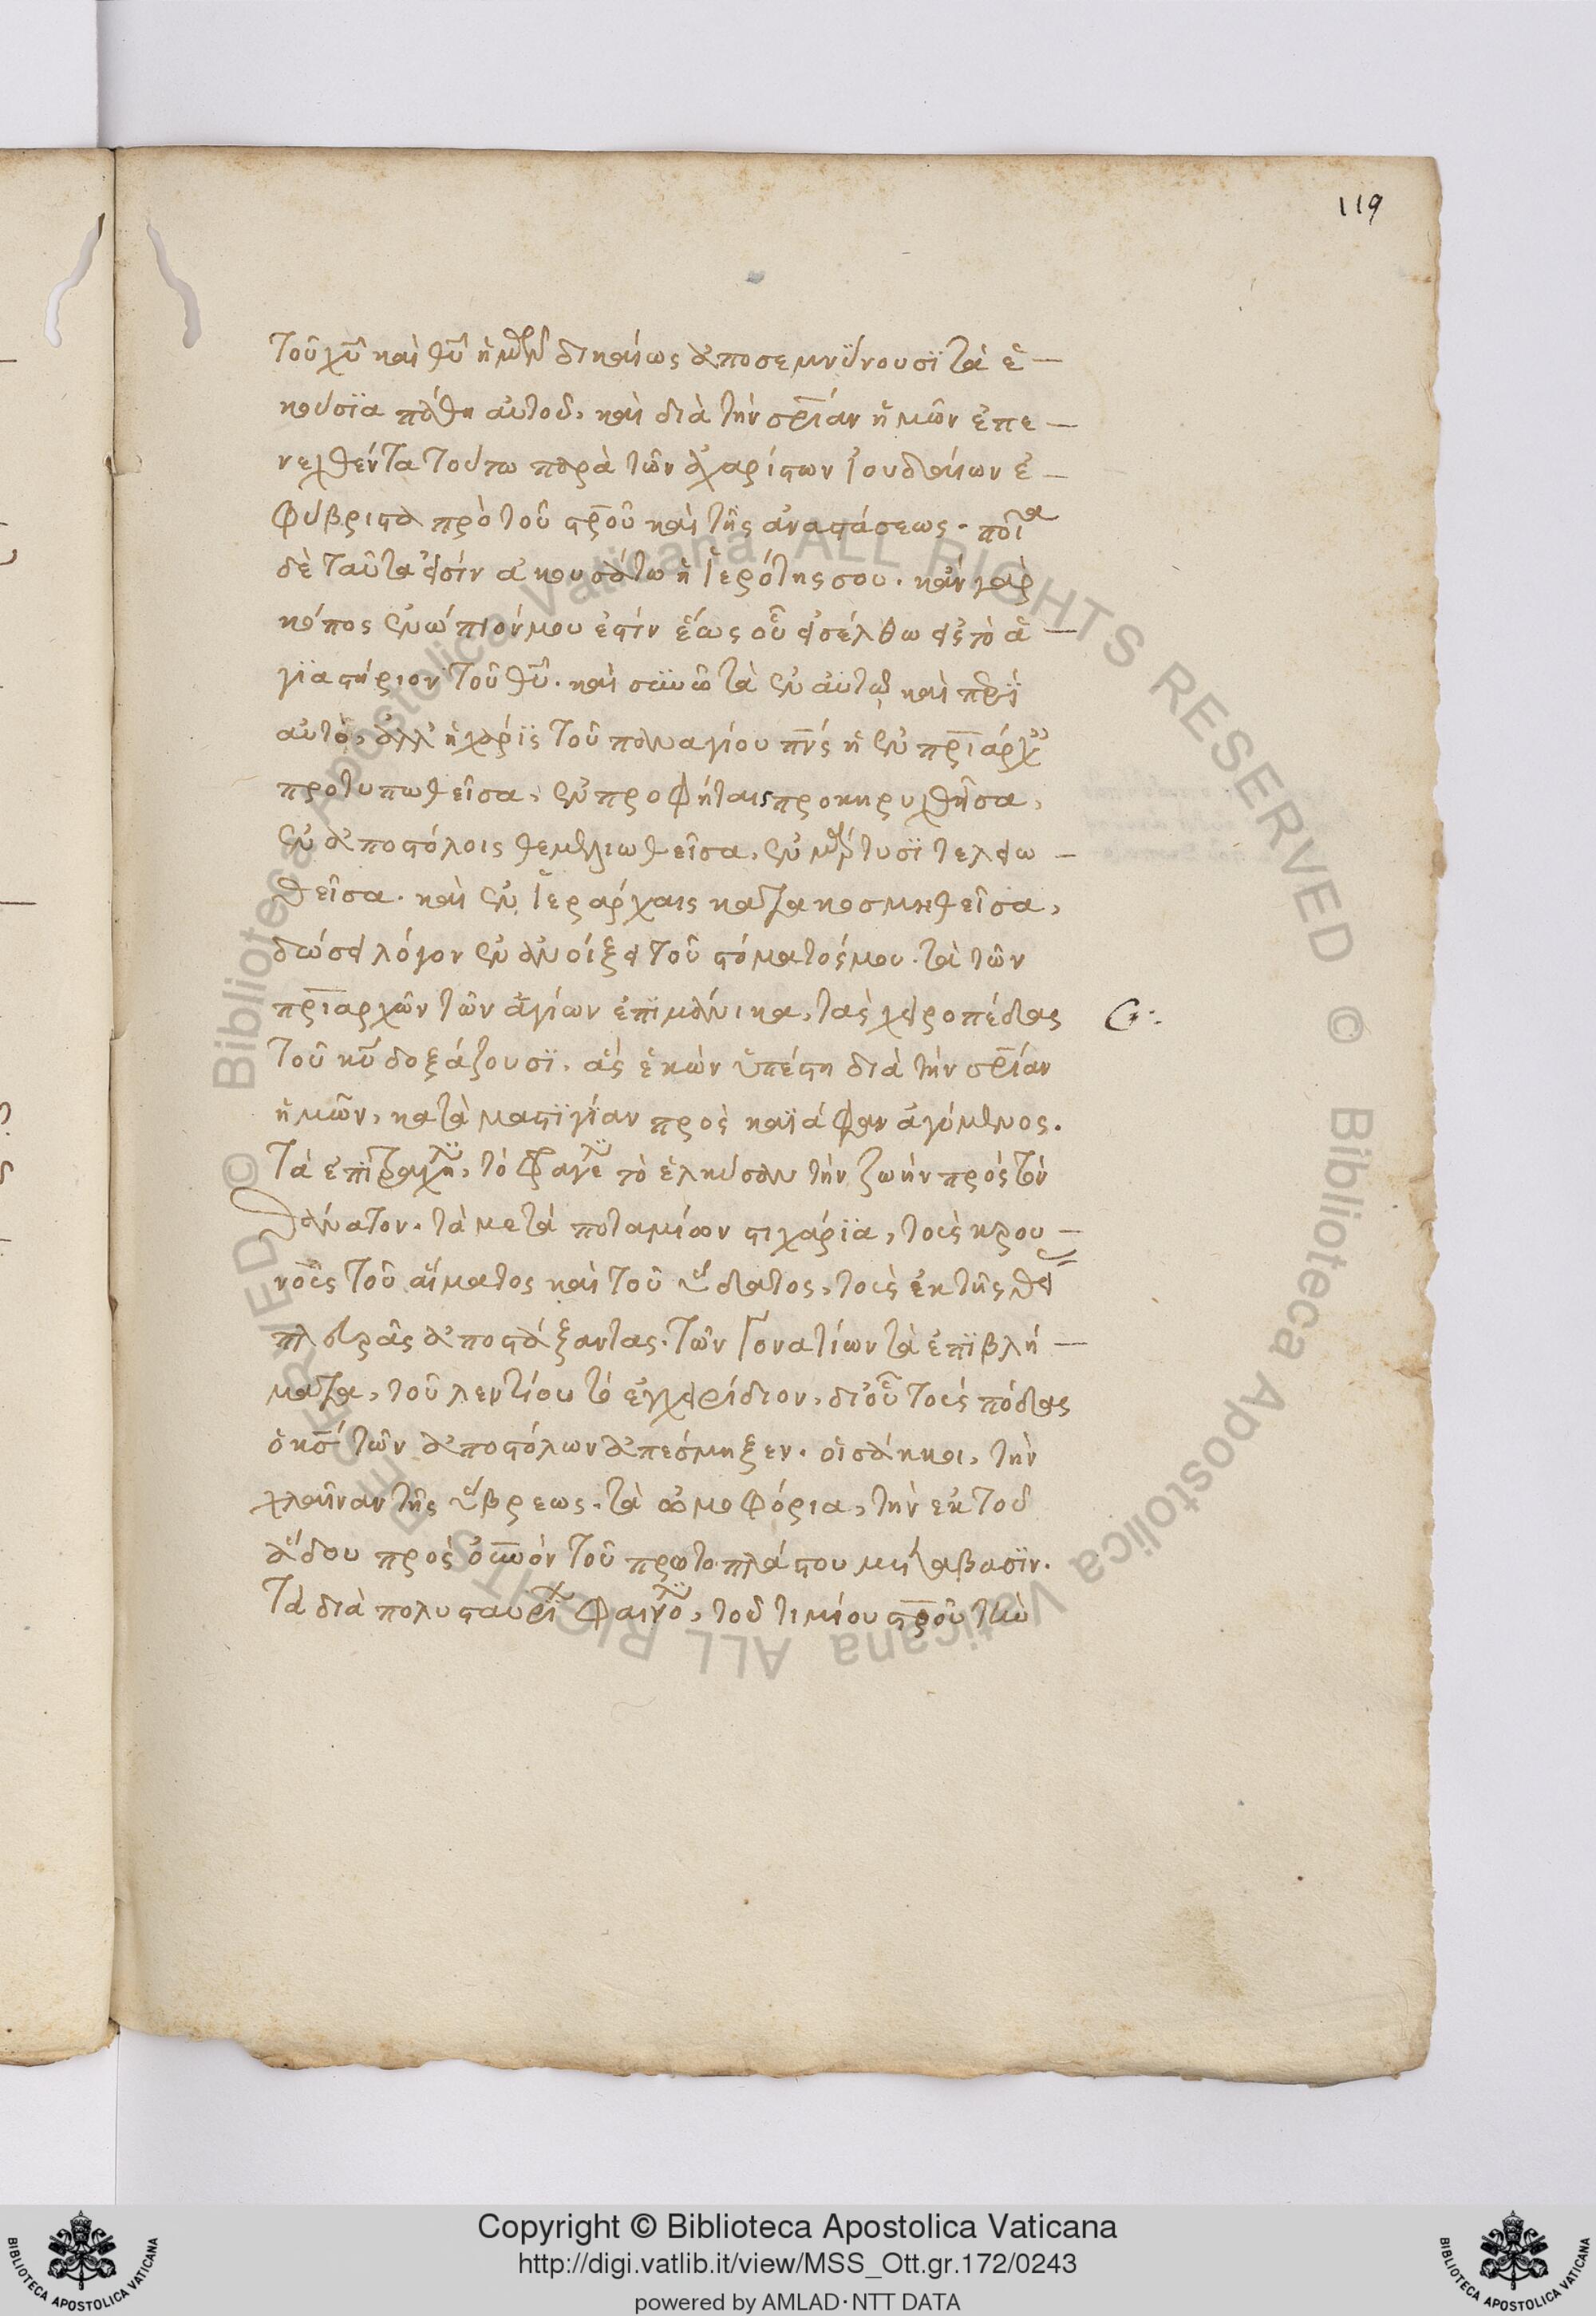 119
τοῦ χυ καὶ θυ ἡμῶν δικαίως ἀποσεμνύνουσϊ τὰ ἑ
κούσϊα πάθη αὐτοῦ, καὶ διὰ τὴν σρίαν ἡμῶν ἐπε
νεχθέντα τούτω παρὰ τῶν ἀχαρίστων ἰουδαίων ἐ
φύβριστα πρὸ τοῦ στροῦ καὶ τῆς ἀναστάσεως. ποῖα
δὲ ταῦτα εἰσὶν ἀκουσάτω ἡ ἱερότης σου. κἂν γὰρ
κόπος ἐνώπιόν μου ἐστὶν ἕως οὗ εἰσέλθω εἰς τὸ ἁ
γϊαστήριον τοῦ θυ. καὶ συνιῶ τὰ ἐν αὐτῷ καὶ περὶ
αὐτὸ, ἀλλ' ἡ χάρϊς τοῦ παναγίου πνς ἡ ἐν πριάρχαις
προτυπωθεῖσα, ἐν προφήταις προκηρυχθεῖσα,
ἐν ἀποστόλοις θεμελιωθεῖσα, ἐν μάρτυσϊ τελειω
θεῖσα. καὶ ἐν ἱεράρχαις κατακοσμηθεῖσα,
δώσει λόγον ἐν ἀνοίξει τοῦ στόματός μου. τὰ τῶν
πριαρχῶν τῶν ἁγίων ἐπϊμάνικα, τὰς χειροπέδας
τοῦ κυ δοξάζουσϊ. ἃς ἑκὼν ὑπέστη διὰ τὴν σρίαν
ἡμῶν, κατὰ μαστϊγίαν πρὸς καϊάφαν ἀγόμενος.
Τὰ ἐπϊτραχήλϊα, τὸ φραγέλϊον τὸ ἑλκύσαν τὴν ζωὴν πρὸς τὸν
θάνατον. τὰ μετὰ ποταμίων στιχάρϊα, τοὺς κρου
νοὺς τοῦ αἵματος καὶ τοῦ ὕδατος, τοὺς ἐκ τῆς θεί
πλευρᾶς ἀποστάξαντας. τῶν γονατίων τὰ ἐπϊβλή
ματα, τοῦ λεντίου τὸ ἐγχειρίδιον, δι' οὗ τοὺς πόδας
ὁ κσ τῶν ἀποστόλων ἀπέσμηξεν. οἱ σάκκοι, τὴν
χλαῖναν τῆς ὕβρεως. τὰ ὠμοφόρια, τὴν ἐκ τοῦ
ἅδου πρὸς οὐνὸν τοῦ πρωτοπλάστου μετάβασϊν.
Τὰ διὰ πολυσταυρί φαινόλϊα, τοῦ τιμίου στροῦ τὴν
Copyright © Biblioteca Apostolica Vaticana
http://digi.vatlib.it/view/MSS_Ott.gr.172/0243
powered by AMLAD·NTT DATA